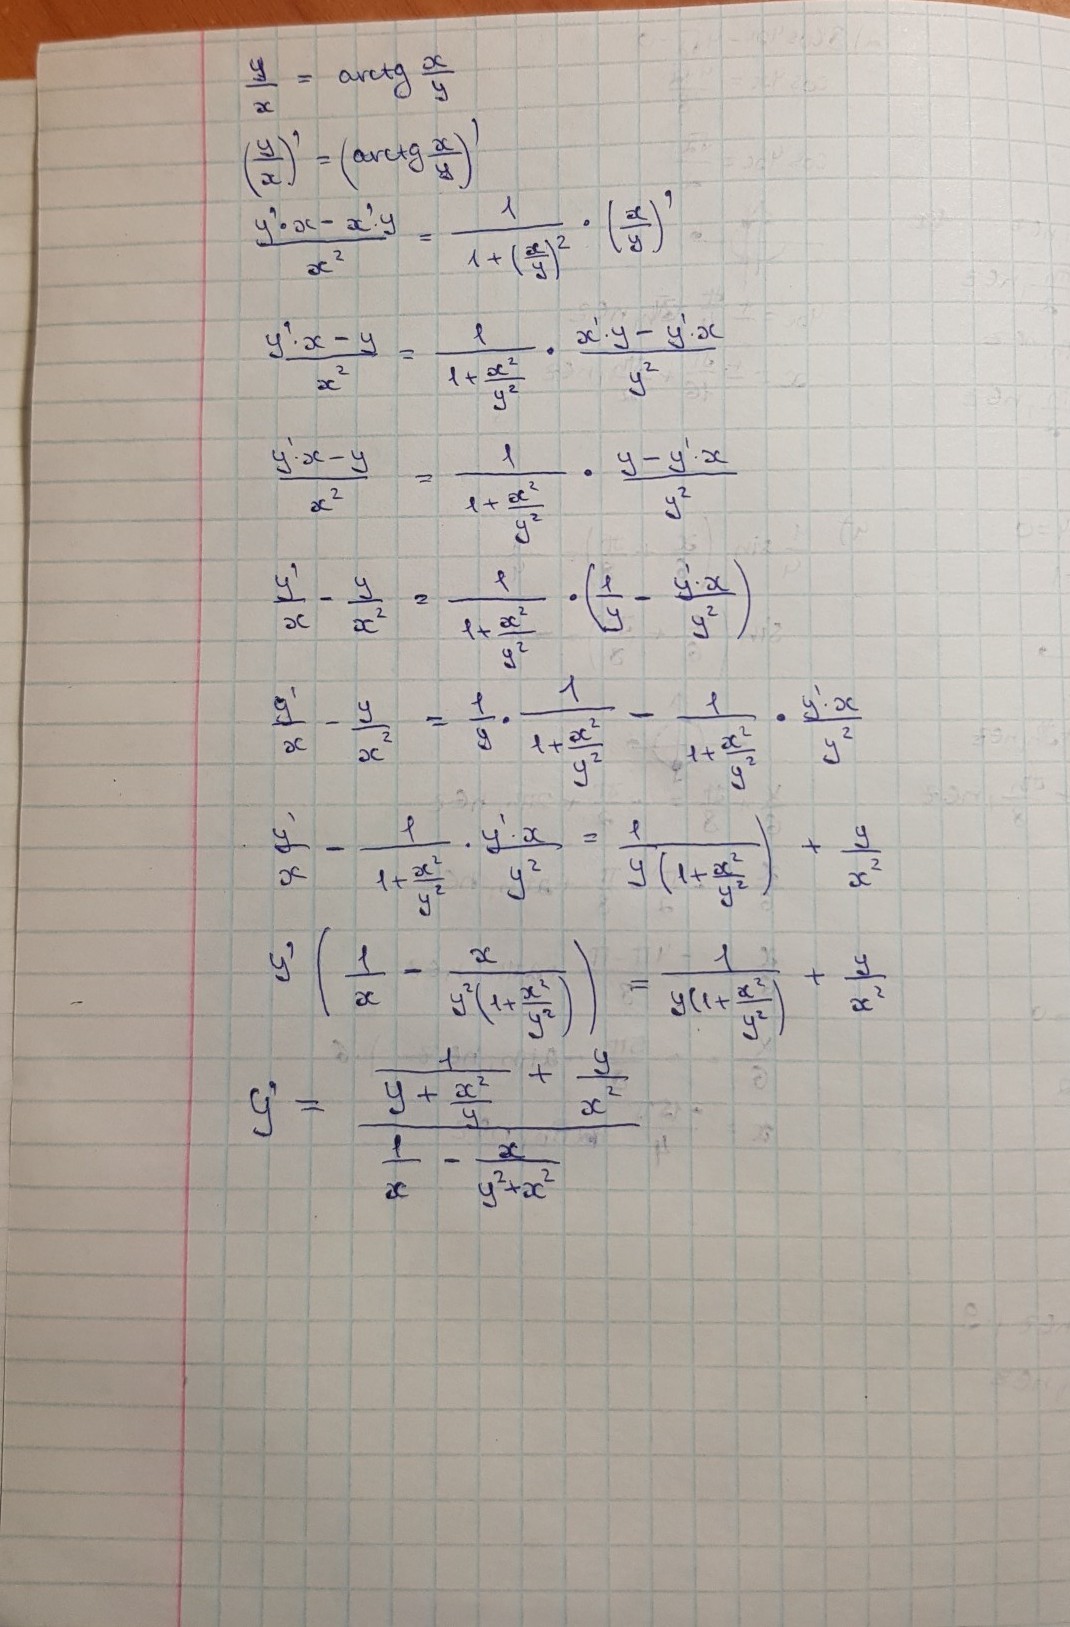 y/x = arctg x/y
(y/x)' = (arctg x/y)'
(y'·x − x'·y)/x² = 1/(1+(x/y)²) · (x/y)'
(y'·x − y)/x² = 1/(1+x²/y²) · (x'·y − y'·x)/y²
(y'·x − y)/x² = 1/(1+x²/y²) · (y − y'·x)/y²
y'/x − y/x² = 1/(1+x²/y²) · (1/y − y'·x/y²)
y'/x − y/x² = 1/y · 1/(1+x²/y²) − 1/(1+x²/y²) · y'·x/y²
y'/x − 1/(1+x²/y²) · y'·x/y² = 1/(y(1+x²/y²)) + y/x²
y'(1/x − x/(y²(1+x²/y²))) = 1/(y(1+x²/y²)) + y/x²
y' = (1/(y+x²/y) + y/x²)/(1/x − x/(y²+x²))